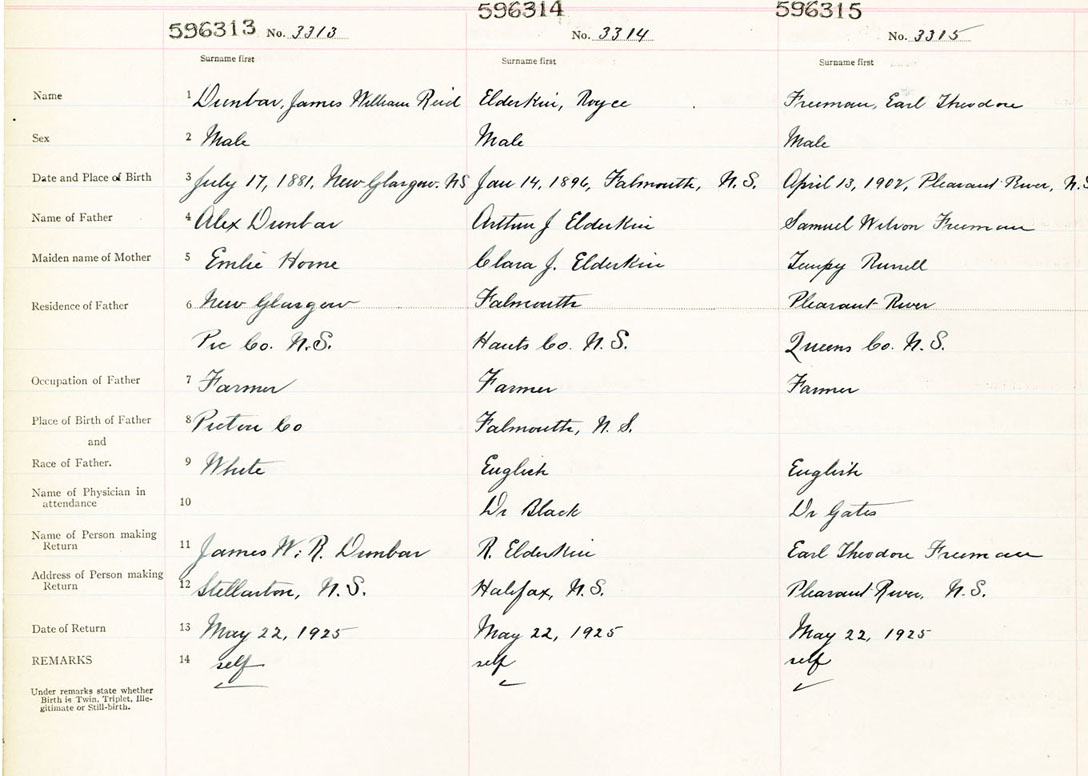 596313 No. 3313 596314 No. 3314 596315 No. 3315
Surname first Surname first Surname first
Name 1 Dunbar, James William Reid Elderkin, Royce Freeman, Earl Theodore
Sex 2 Male Male Male
Date and Place of Birth 3 July 17, 1881, New Glasgow. NS Jan 14, 1896, Falmouth, N.S. April 13, 1902, Pleasant River, N.S
Name of Father 4 Alex Dunbar Arthur J Elderkin Samuel Wilson Freeman
Maiden name of Mother 5 Emlie Horne Clara J. Elderkin Tempy Russell
Residence of Father 6 New Glasgow Falmouth Pleasant River
Pic Co. N.S. Hants Co. N.S. Queens Co. N.S.
Occupation of Father 7 Farmer Farmer Farmer
Place of Birth of Father 8 Pictou Co Falmouth, N.S.
and
Race of Father. 9 White English English
Name of Physician in
attendance 10 Dr Black Dr Gates
Name of Person making
Return 11 James W. R. Dunbar R. Elderkin Earl Theodore Freeman
Address of Person making
Return 12 Stellarton, N.S. Halifax, N.S. Pleasant River, N.S.
Date of Return 13 May 22, 1925 May 22, 1925 May 22, 1925
REMARKS 14 self self self
Under remarks state whether
Birth is Twin, Triplet, Ille-
gitimate or Still-birth.